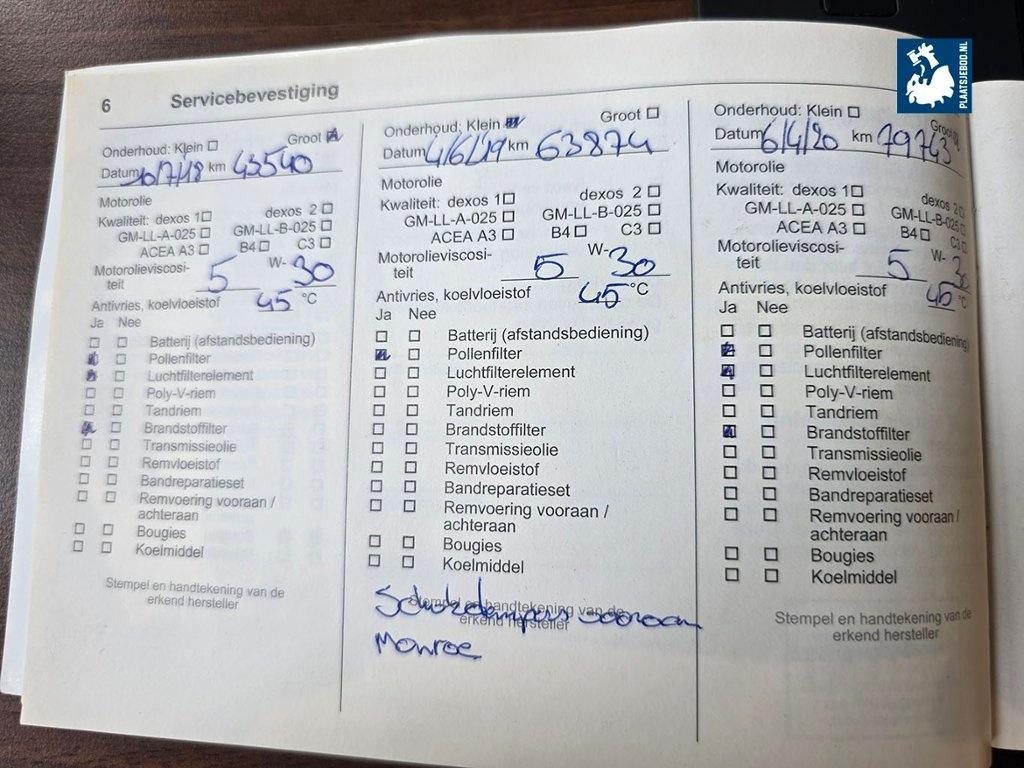 PLAATSJEBOD.NL
6 Servicebevestiging
Onderhoud: Klein Groot
Datum 10/7/18 km 43540
Motorolie
Kwaliteit: dexos 1 dexos 2
GM-LL-A-025 GM-LL-B-025
ACEA A3 B4 C3
Motorolieviscosi- 5 W- 30
teit
Antivries, koelvloeistof 45 °C
Ja Nee
Batterij (afstandsbediening)
Pollenfilter
Luchtfilterelement
Poly-V-riem
Tandriem
Brandstoffilter
Transmissieolie
Remvloeistof
Bandreparatieset
Remvoering vooraan /
achteraan
Bougies
Koelmiddel
Stempel en handtekening van de
erkend hersteller
Onderhoud: Klein Groot
Datum 4/6/19 km 63874
Motorolie
Kwaliteit: dexos 1 dexos 2
GM-LL-A-025 GM-LL-B-025
ACEA A3 B4 C3
Motorolieviscosi- 5 W- 30
teit
Antivries, koelvloeistof 45 °C
Ja Nee
Batterij (afstandsbediening)
Pollenfilter
Luchtfilterelement
Poly-V-riem
Tandriem
Brandstoffilter
Transmissieolie
Remvloeistof
Bandreparatieset
Remvoering vooraan /
achteraan
Bougies
Koelmiddel
Stempel en handtekening van de
erkend hersteller
Schokdempers vooraan
Monroe
Onderhoud: Klein Groot
Datum 6/4/20 km 79743
Motorolie
Kwaliteit: dexos 1 dexos 2
GM-LL-A-025 GM-LL-B-025
ACEA A3 B4 C3
Motorolieviscosi- 5 W- 30
teit
Antivries, koelvloeistof 45 °C
Ja Nee
Batterij (afstandsbediening)
Pollenfilter
Luchtfilterelement
Poly-V-riem
Tandriem
Brandstoffilter
Transmissieolie
Remvloeistof
Bandreparatieset
Remvoering vooraan /
achteraan
Bougies
Koelmiddel
Stempel en handtekening van de
erkend hersteller